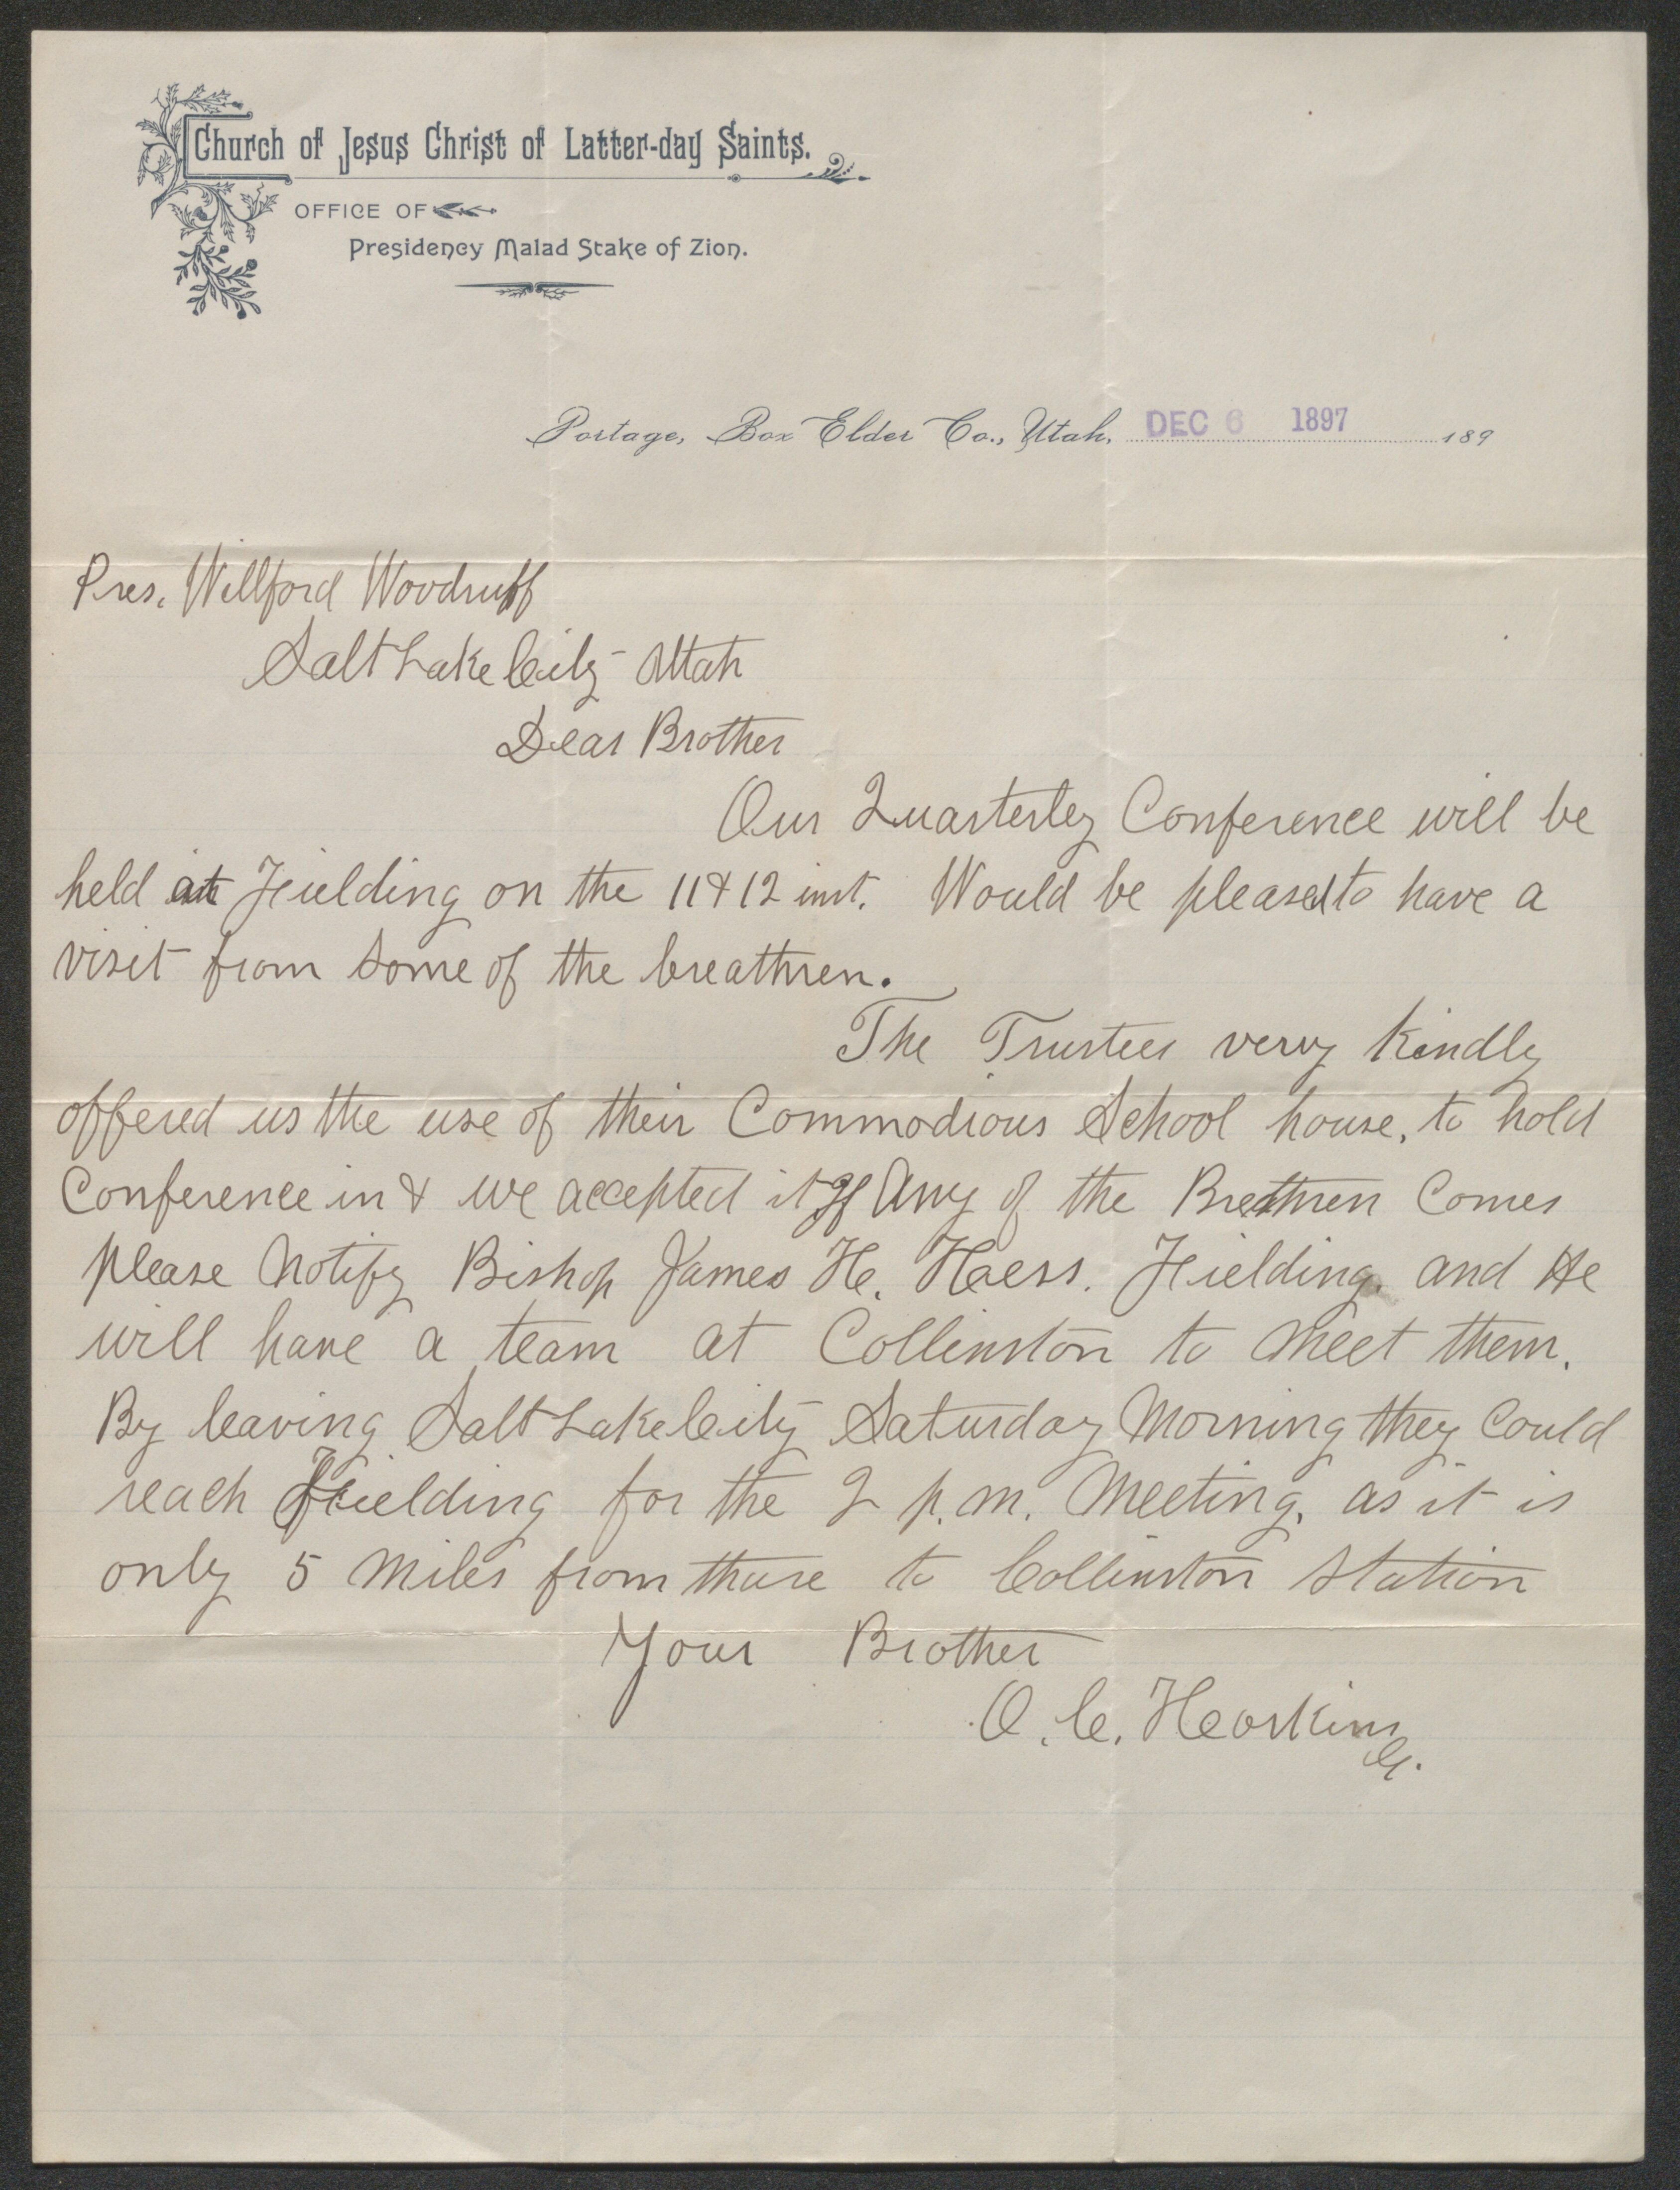 Church of Jesus Christ of Latter-day Saints.
OFFICE OF
Presidency Malad Stake of Zion.
Portage, Box Elder Co., Utah, DEC 6 1897 189
Pres. Willford Woodruff
Salt Lake City Utah
Dear Brother
Our Quarterley Conference will be
held at Fielding on the 11 & 12 inst. Would be pleased to have a
visit from some of the breathren.
The Trustees very kindly
offered us the use of their Commodious School house, to hold
Conference in & we accepted it If Any of the Brethren Comes
please Notify Bishop James H. Hess. Fielding. and He
will have a team at Collinston to Meet them.
By leaving Salt Lake City Saturday Morning they Could
reach Fielding for the 2 p.m. Meeting, as it is
only 5 Miles from thare to Collinston Station
Your Brother
O. C. Hoskins
G.